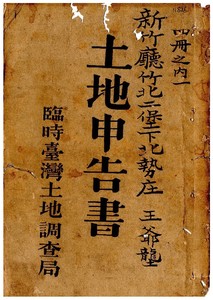 四冊之內一
新竹廳竹北二堡下北勢庄 王爺壟
土地申告書
臨時臺灣土地調查局